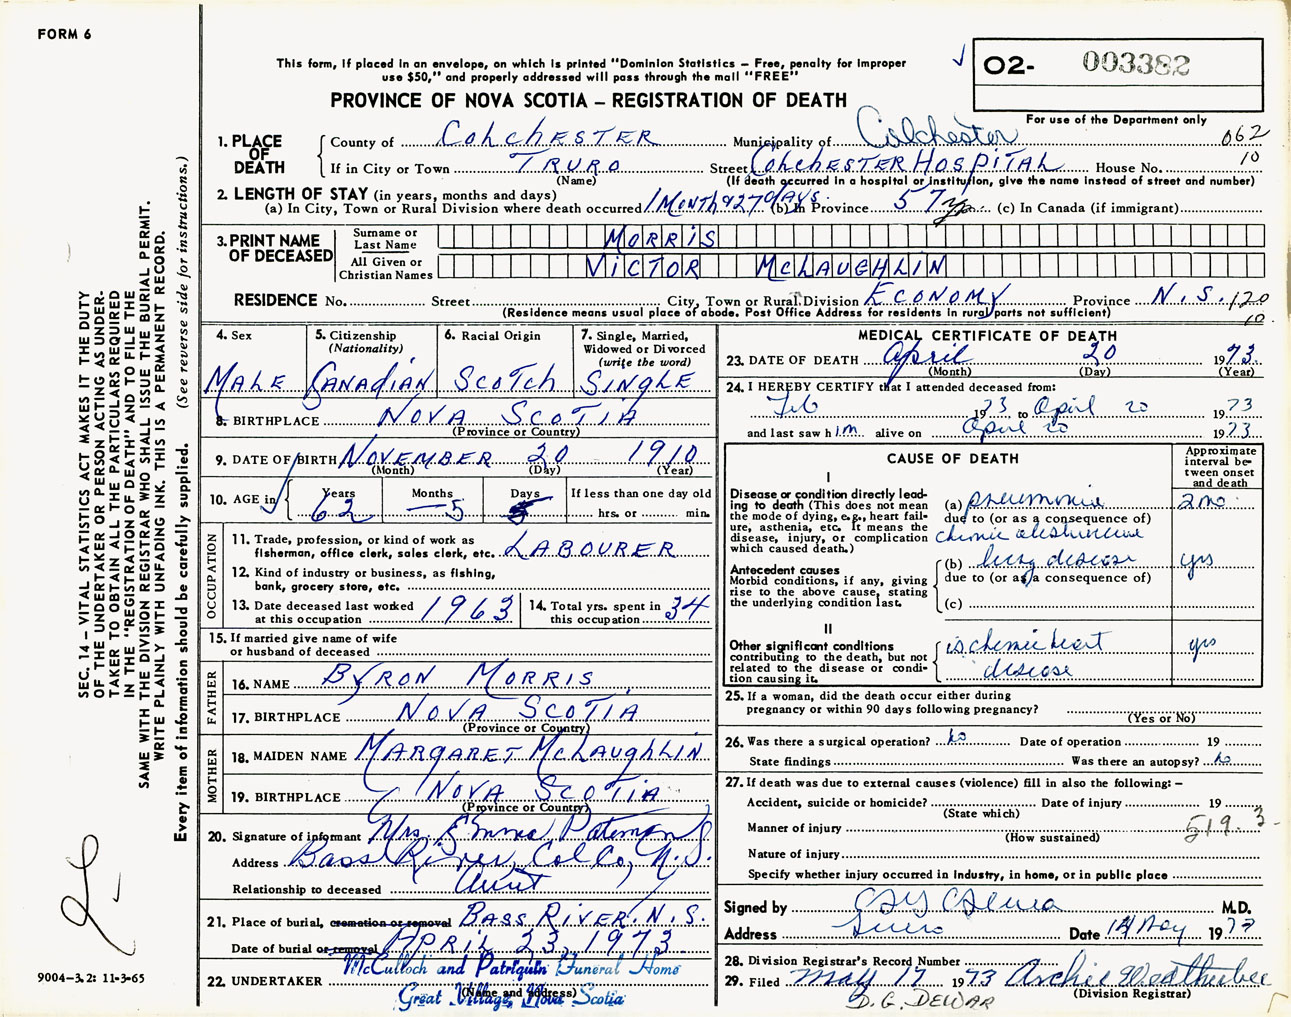 FORM 6
This form, if placed in an envelope, on which is printed "Dominion Statistics – Free, penalty for improper
use $50," and properly addressed will pass through the mail "FREE"
PROVINCE OF NOVA SCOTIA – REGISTRATION OF DEATH
O2- 003382
For use of the Department only
062
10
1. PLACE OF DEATH
County of COLCHESTER Municipality of Colchester
If in City or Town TRURO Street COLCHESTER HOSPITAL House No.
(Name) (If death occurred in a hospital or institution, give the name instead of street and number)
2. LENGTH OF STAY (in years, months and days)
(a) In City, Town or Rural Division where death occurred 1 MONTH & 27 days. (b) In Province 57 yrs. (c) In Canada (if immigrant)
3. PRINT NAME OF DECEASED
Surname or Last Name MORRIS
All Given or Christian Names VICTOR McLAUGHLIN
RESIDENCE No. Street City, Town or Rural Division ECONOMY Province N.S. 120
10
(Residence means usual place of abode. Post Office Address for residents in rural parts not sufficient)
4. Sex MALE
5. Citizenship (Nationality) CANADIAN
6. Racial Origin SCOTCH
7. Single, Married, Widowed or Divorced (write the word) SINGLE
8. BIRTHPLACE NOVA SCOTIA
(Province or Country)
9. DATE OF BIRTH NOVEMBER 20 1910
(Month) (Day) (Year)
10. AGE in Years 62 Months – 5 Days If less than one day old hrs. or min.
OCCUPATION
11. Trade, profession, or kind of work as fisherman, office clerk, sales clerk, etc. LABOURER
12. Kind of industry or business, as fishing, bank, grocery store, etc.
13. Date deceased last worked at this occupation 1963
14. Total yrs. spent in this occupation 34
15. If married give name of wife or husband of deceased
FATHER
16. NAME BYRON MORRIS
17. BIRTHPLACE NOVA SCOTIA
(Province or Country)
MOTHER
18. MAIDEN NAME MARGARET McLAUGHLIN
19. BIRTHPLACE NOVA SCOTIA
(Province or Country)
20. Signature of informant Mrs. Emma
Address Bass River, Col Co, N.S.
Relationship to deceased Aunt
21. Place of burial, cremation or removal BASS RIVER. N.S.
Date of burial or removal APRIL 23, 1973
22. UNDERTAKER McCulloch and Patriquin Funeral Home
(Name and address)
Great Village, Nova Scotia
MEDICAL CERTIFICATE OF DEATH
23. DATE OF DEATH April 20 1973
(Month) (Day) (Year)
24. I HEREBY CERTIFY that I attended deceased from:
Feb 1973 to April 20 1973
and last saw him alive on April 20 1973
CAUSE OF DEATH
Approximate interval between onset and death
I
Disease or condition directly leading to death (This does not mean the mode of dying, e.g., heart failure, asthenia, etc. It means the disease, injury, or complication which caused death.)
(a) pneumonia 2 mo.
due to (or as a consequence of)
chronic obstructive
(b) lung disease yrs
due to (or as a consequence of)
Antecedent causes
Morbid conditions, if any, giving rise to the above cause, stating the underlying condition last.
(c)
II
Other significant conditions contributing to the death, but not related to the disease or condition causing it.
ischemic heart yrs
disease
25. If a woman, did the death occur either during pregnancy or within 90 days following pregnancy?
(Yes or No)
26. Was there a surgical operation? no Date of operation 19
State findings Was there an autopsy? no
27. If death was due to external causes (violence) fill in also the following: –
Accident, suicide or homicide? Date of injury 19
(State which)
Manner of injury 519.3
(How sustained)
Nature of injury
Specify whether injury occurred in industry, in home, or in public place
Signed by M.D.
Address Truro Date 14 May 1973
28. Division Registrar's Record Number
29. Filed May 17 1973 Archie Weatherbee
(Division Registrar)
D.G. DEWAR
SEC. 14 – VITAL STATISTICS ACT MAKES IT THE DUTY
OF THE UNDERTAKER OR PERSON ACTING AS UNDER-
TAKER TO OBTAIN ALL THE PARTICULARS REQUIRED
IN THE "REGISTRATION OF DEATH" AND TO FILE THE
SAME WITH THE DIVISION REGISTRAR WHO SHALL ISSUE THE BURIAL PERMIT.
WRITE PLAINLY WITH UNFADING INK. THIS IS A PERMANENT RECORD.
Every item of information should be carefully supplied. (See reverse side for instructions.)
9004–3.2: 11-3-65